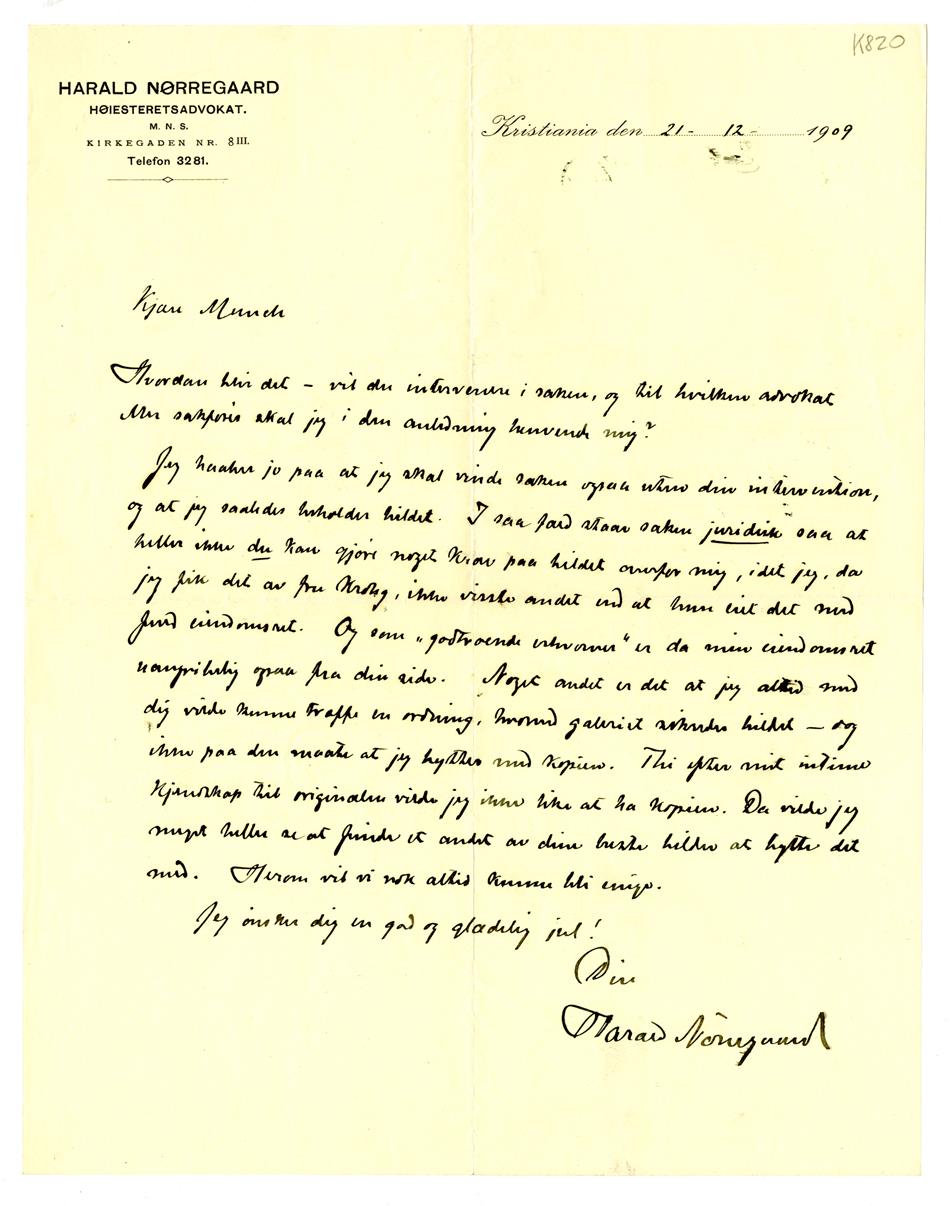 K820
HARALD NØRREGAARD
HØIESTERETSADVOKAT.
M. N. S.
KIRKEGADEN NR. 8 III.
Telefon 3281.
Kristiania den 21- 12- 1909
Kjære Munch
Hvordan blir det – vil du intervenere i saken, og til hvilken advokat
eller sakfører skal jeg i den anledning henvende mig?
Jeg haaber jo paa at jeg skal vinde saken ogsaa uten din intervention,
og at jeg saaledes beholder bildet. I saa fald staar saken juridisk saa at
heller ikke du kan gjøre noget krav paa bildet overfor mig, idet jeg, da
jeg fik det av fru Krohg, ikke visste andet end at hun eiet det med
fuld eiendomsret. Og som „godtroende erhverver“ er da min eiendomsret
uangribelig ogsaa fra din side. Noget andet er det at jeg altid med
dig vilde kunne træffe en ordning, hvorved galeriet sikredes bildet – dog
ikke paa den maate at jeg bytter med kopien. Thi efter mit intime
kjendskap til originalen vilde jeg ikke like at ha kopien. Da vilde jeg
meget heller se at finde et andet av dine beste bilder at bytte det
med. Herom vil vi nok altid kunne bli enige.
Jeg ønsker dig en god og glædelig jul!
Din
Harald Nörregaard